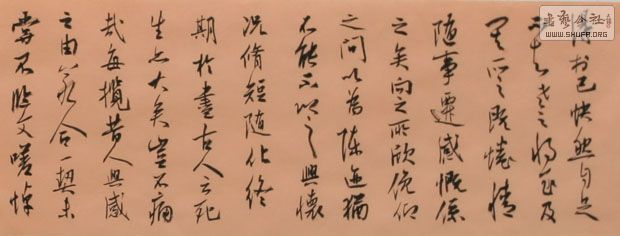 得於己快然自足
不知老之將至及
其所之既惓情
隨事遷感慨係
之矣向之所欣俛仰
之間以為陳迹猶
不能不以之興懷
況脩短隨化終
期於盡古人云死
生亦大矣豈不痛
哉每攬昔人興感
之由若合一契未
嘗不臨文嗟悼
WWW.SHUFA.ORG